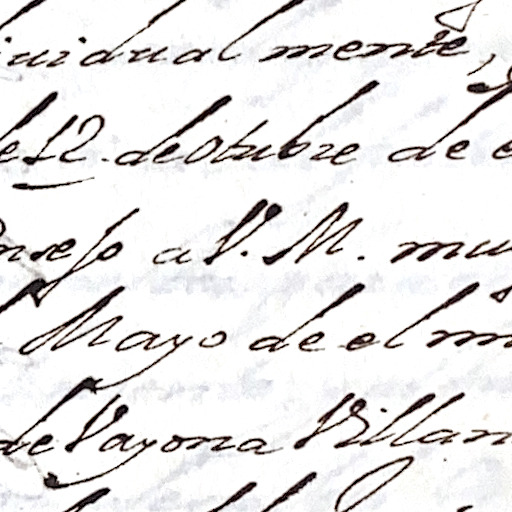 ividualmente,
de 12. de Otubre de e
onsejo a V. M. mu
Mayo de el mi
de Vayona Villan